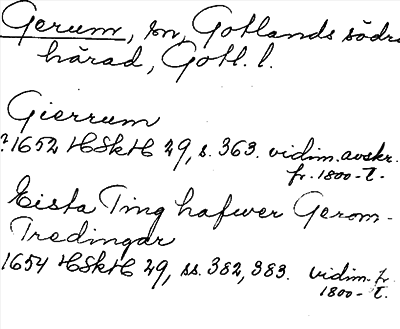 Gerum, sn, Gotlands södra
härad, Gotl. l.
Gierrum
?1652 HSkH 29, s. 363. vidim. avskr.
fr. 1800-t.
Eista Ting hafwer Gerom-
Tredingar
1654 HSkH 29, ss. 382, 383. vidim. fr.
1800-t.